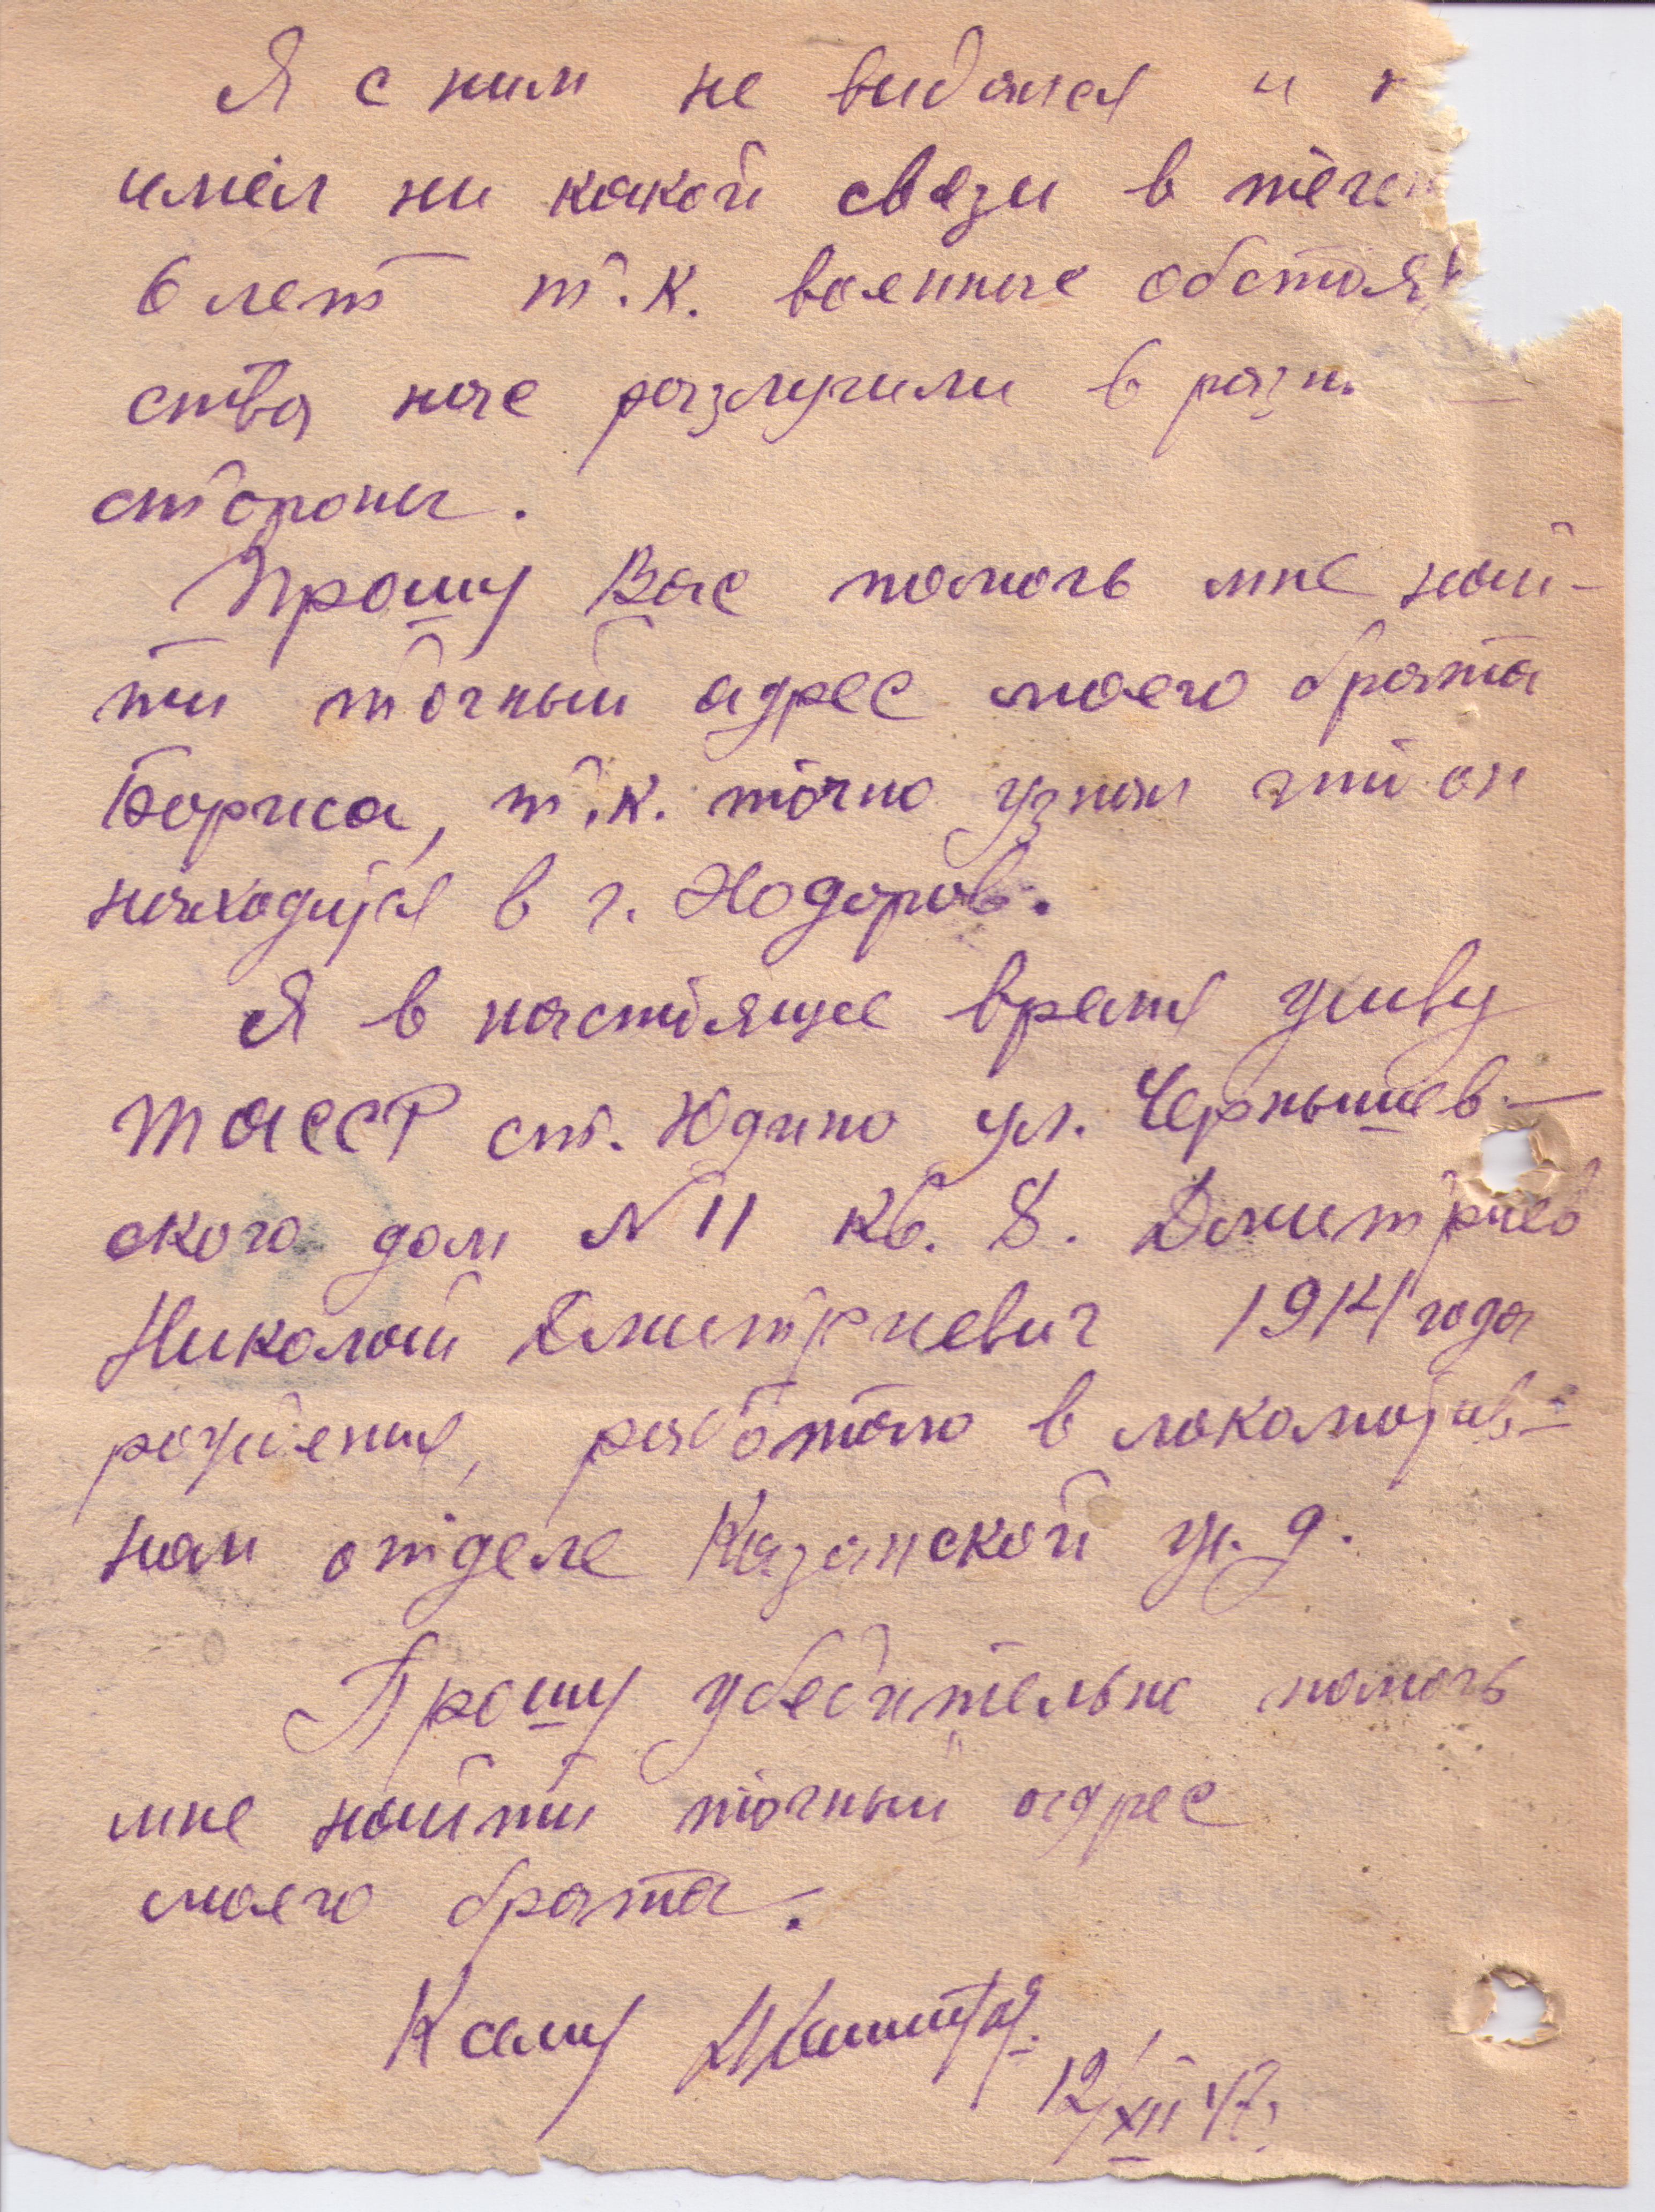 Я с ним не видался и
имел ни какой связи в
6 лет т.к. военные обстоя
ства нас разлучили в
стороны.
Прошу Вас помочь мне най-
ти точный адрес моего брата
Бориса, т.к. точно узнал что он
находится в г. Ходоров.
Я в настоящее время живу
ТАССР ст. Юдино ул. Чернышев-
ского дом N 11 кв. 8. Дмитриев
Николай Дмитриевич 1914 года
рождения, работаю в локомотив-
ном отделе Казанской ж. д.
Прошу убедительно помочь
мне найти точный адрес
моего брата.
К сему
12/XII 47